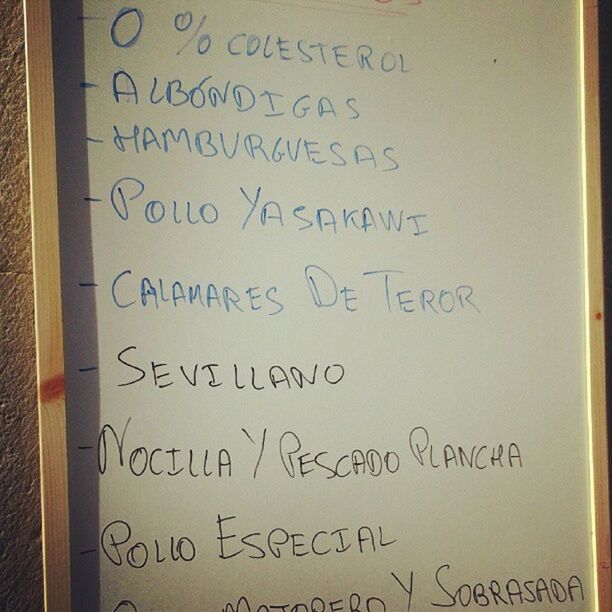 - 0 % COLESTEROL
- ALBÓNDIGAS
- HAMBURGUESAS
- POLLO YASAKAWI
- CALAMARES DE TEROR
- SEVILLANO
- NOCILLA Y PESCADO PLANCHA
- POLLO ESPECIAL
MAJORERO Y SOBRASADA